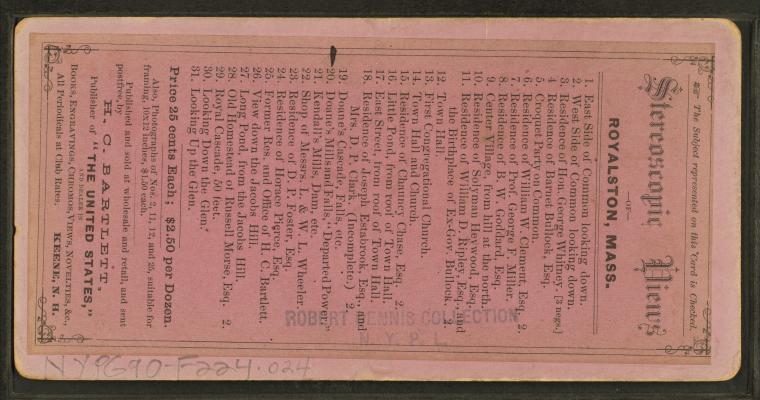 The Subject represented on this Card is Checked.
Stereoscopic Views
—OF—
ROYALSTON, MASS.
1. East Side of Common looking down.
2. West Side of Common looking down.
3. Residence of Hon. George Whitney. [3 negs.]
4 Residence of Barnet Bullock, Esq.
5. Croquet Party on Common.
6. Residence of William W. Clement, Esq. 2.
7. Residence of Prof. George F. Miller.
8. Residence of B. W. Goddard, Esq.
9. Center Village, from hill at the north.
10. Residence of Solyman Heywood, Esq.
11. Residence of William D. Ripley, Esq., and
the Birthplace of Ex-Gov. Bullock. 2
12. Town Hall.
13. First Congregational Church.
14. Town Hall and Church.
15. Residence of Chauncy Chase, Esq. 2.
16. Little Pond, from roof of Town Hall.
17. East Street, from roof of Town Hall.
18. Residence of Joseph Estabrook, Esq., and
Mrs. D. P. Clark. (Incomplete.) 2
19. Doane's Cascade, Falls, etc.
20. Doane's Mills and Falls, "Departed Power."
21. Kendall's Mills, Dam, etc.
22. Shop of Messrs. L. & W. L. Wheeler.
23. Residence of D. P. Foster, Esq.
24. Residence of Horace Pierce, Esq.
25. Former Res. and Office of H. C. Bartlett.
26. View down the Jacobs Hill.
27. Long Pond, from the Jacobs Hill.
28. Old Homestead of Russell Morse, Esq. 2.
29. Royal Cascade, 50 feet.
30. Looking Down the Glen.
31. Looking Up the Glen.
Price 25 cents Each; $2.50 per Dozen.
Also, Photographs of Nos. 2, 11, 12, and 25, suitable for
framing, 10x12 inches, $1.50 each.
Published and sold at wholesale and retail, and sent
postfree, by
H. C. BARTLETT.
Publisher of "THE UNITED STATES,"
AND DEALER IN
BOOKS, ENGRAVINGS, CHROMOS, VIEWS, NOVELTIES, &c.,
All Periodicals at Club Rates. KEENE, N. H.
ROBERT DENNIS COLLECTION
N. Y. P. L.
NY9G90-F224.024